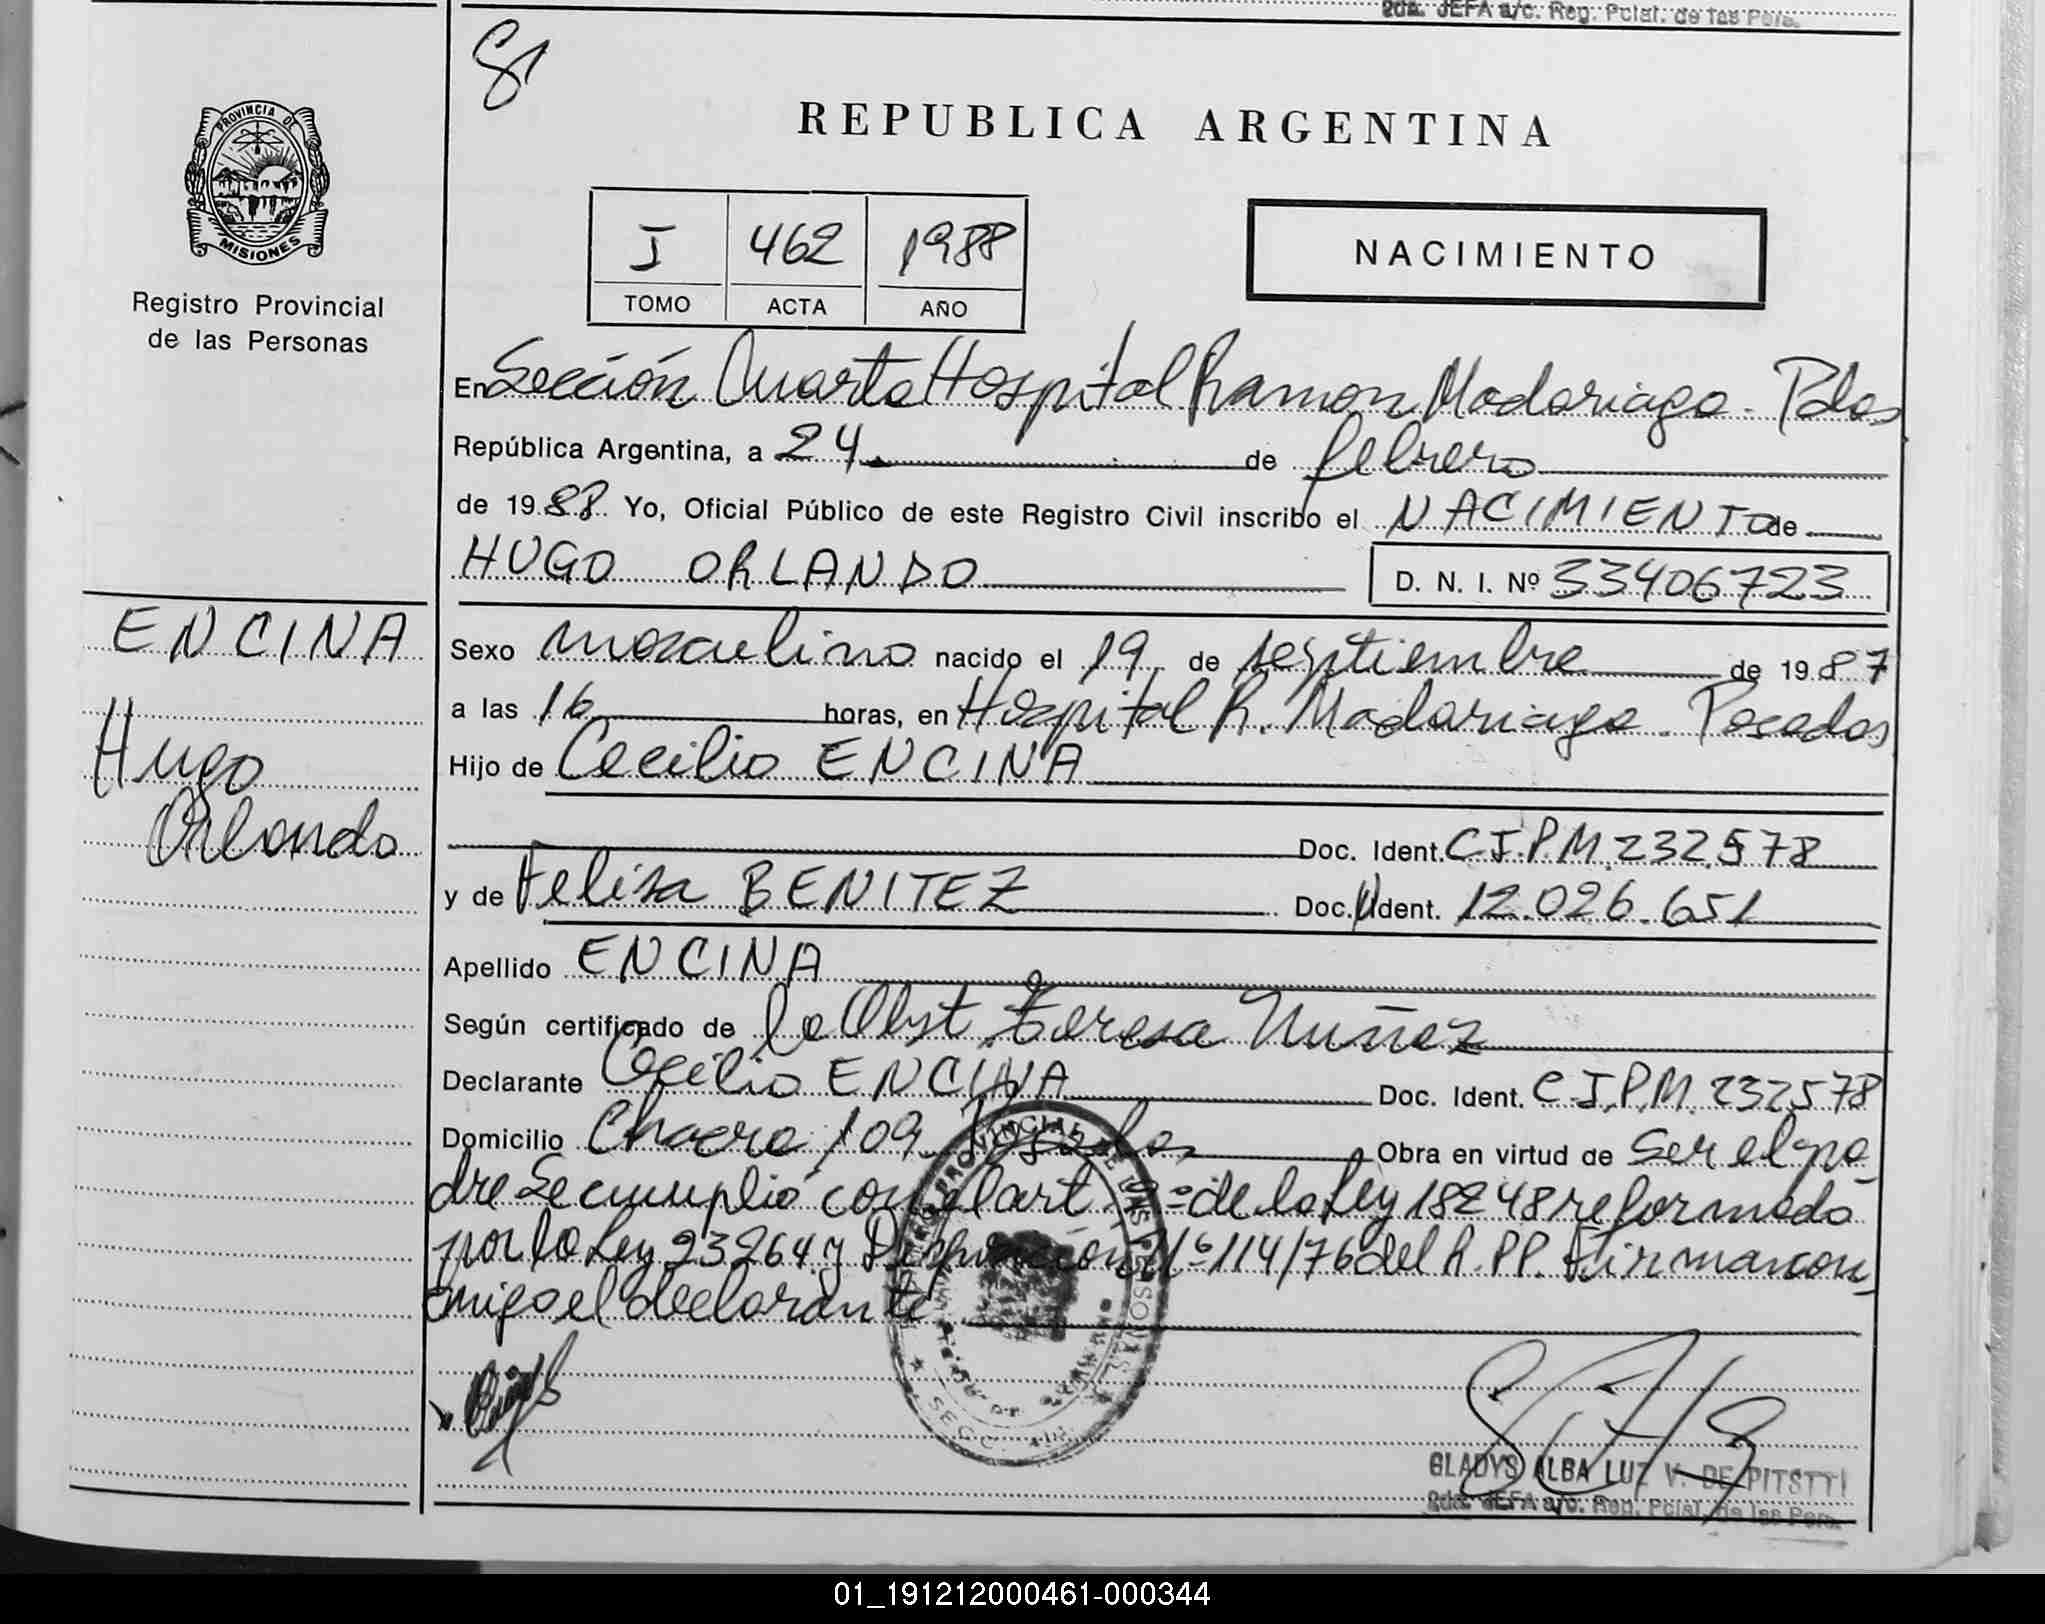 2da. JEFA a/c. Reg. Pcial. de las Pers.
REPUBLICA ARGENTINA
PROVINCIA DE
MISIONES
Registro Provincial
de las Personas
I 462 1988
TOMO ACTA AÑO
NACIMIENTO
En Sección Cuarta Hospital Ramon Madariaga. Pdas
República Argentina, a 24 de febrero
de 1988 Yo, Oficial Público de este Registro Civil inscribo el NACIMIENTO de
HUGO ORLANDO D. N. I. Nº 33406723
ENCINA
Hugo
Orlando
Sexo masculino nacido el 19 de septiembre de 1987
a las 16 horas, en Hospital R. Madariaga. Posadas
Hijo de Cecilio ENCINA
Doc. Ident. C.I.P.M. 232.578
y de Felisa BENITEZ Doc. Ident. 12.026.651
Apellido ENCINA
Según certificado de la Obst. Teresa Nuñez
Declarante Cecilio ENCINA Doc. Ident. C.I.P.M. 232578
Domicilio Chacra 109 Posadas Obra en virtud de ser el pa
dre Se cumplió con el art. 2º de la Ley 18248 reformada
por la Ley 23264 y Disposición Nº 114/76 del R.P.P. Firman con
migo el declarante
GLADYS ALBA LUZ V. DE PITSTTI
2da. JEFA a/c. Reg. Pcial. de las Pers.
01_191212000461-000344